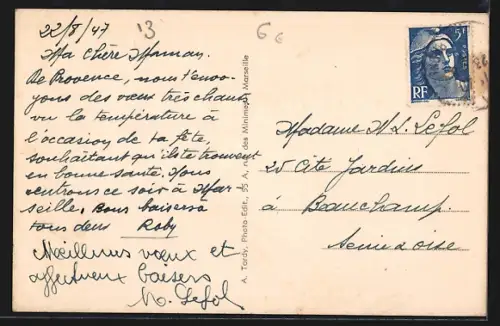 22/8/47
13
6 6
Ma chère Maman.
De Provence, nous t'envo-
yons des vœux très chauds
vu la température à
l'occasion de ta fête,
souhaitant qu'ils te trouvent
en bonne santé. Nous
rentrons ce soir à Mar
seille. Bons baisers à
tous deux Roby
Meilleurs vœux et
affectueux baisers
N. Lefol
A. Tardy, Photo-Edit., 95 A, des Minimes, Marseille
5F
POSTES
RF
Madame N. L. Lefol
25 Cité Jardins
à Beauchamp.
Seine & oise